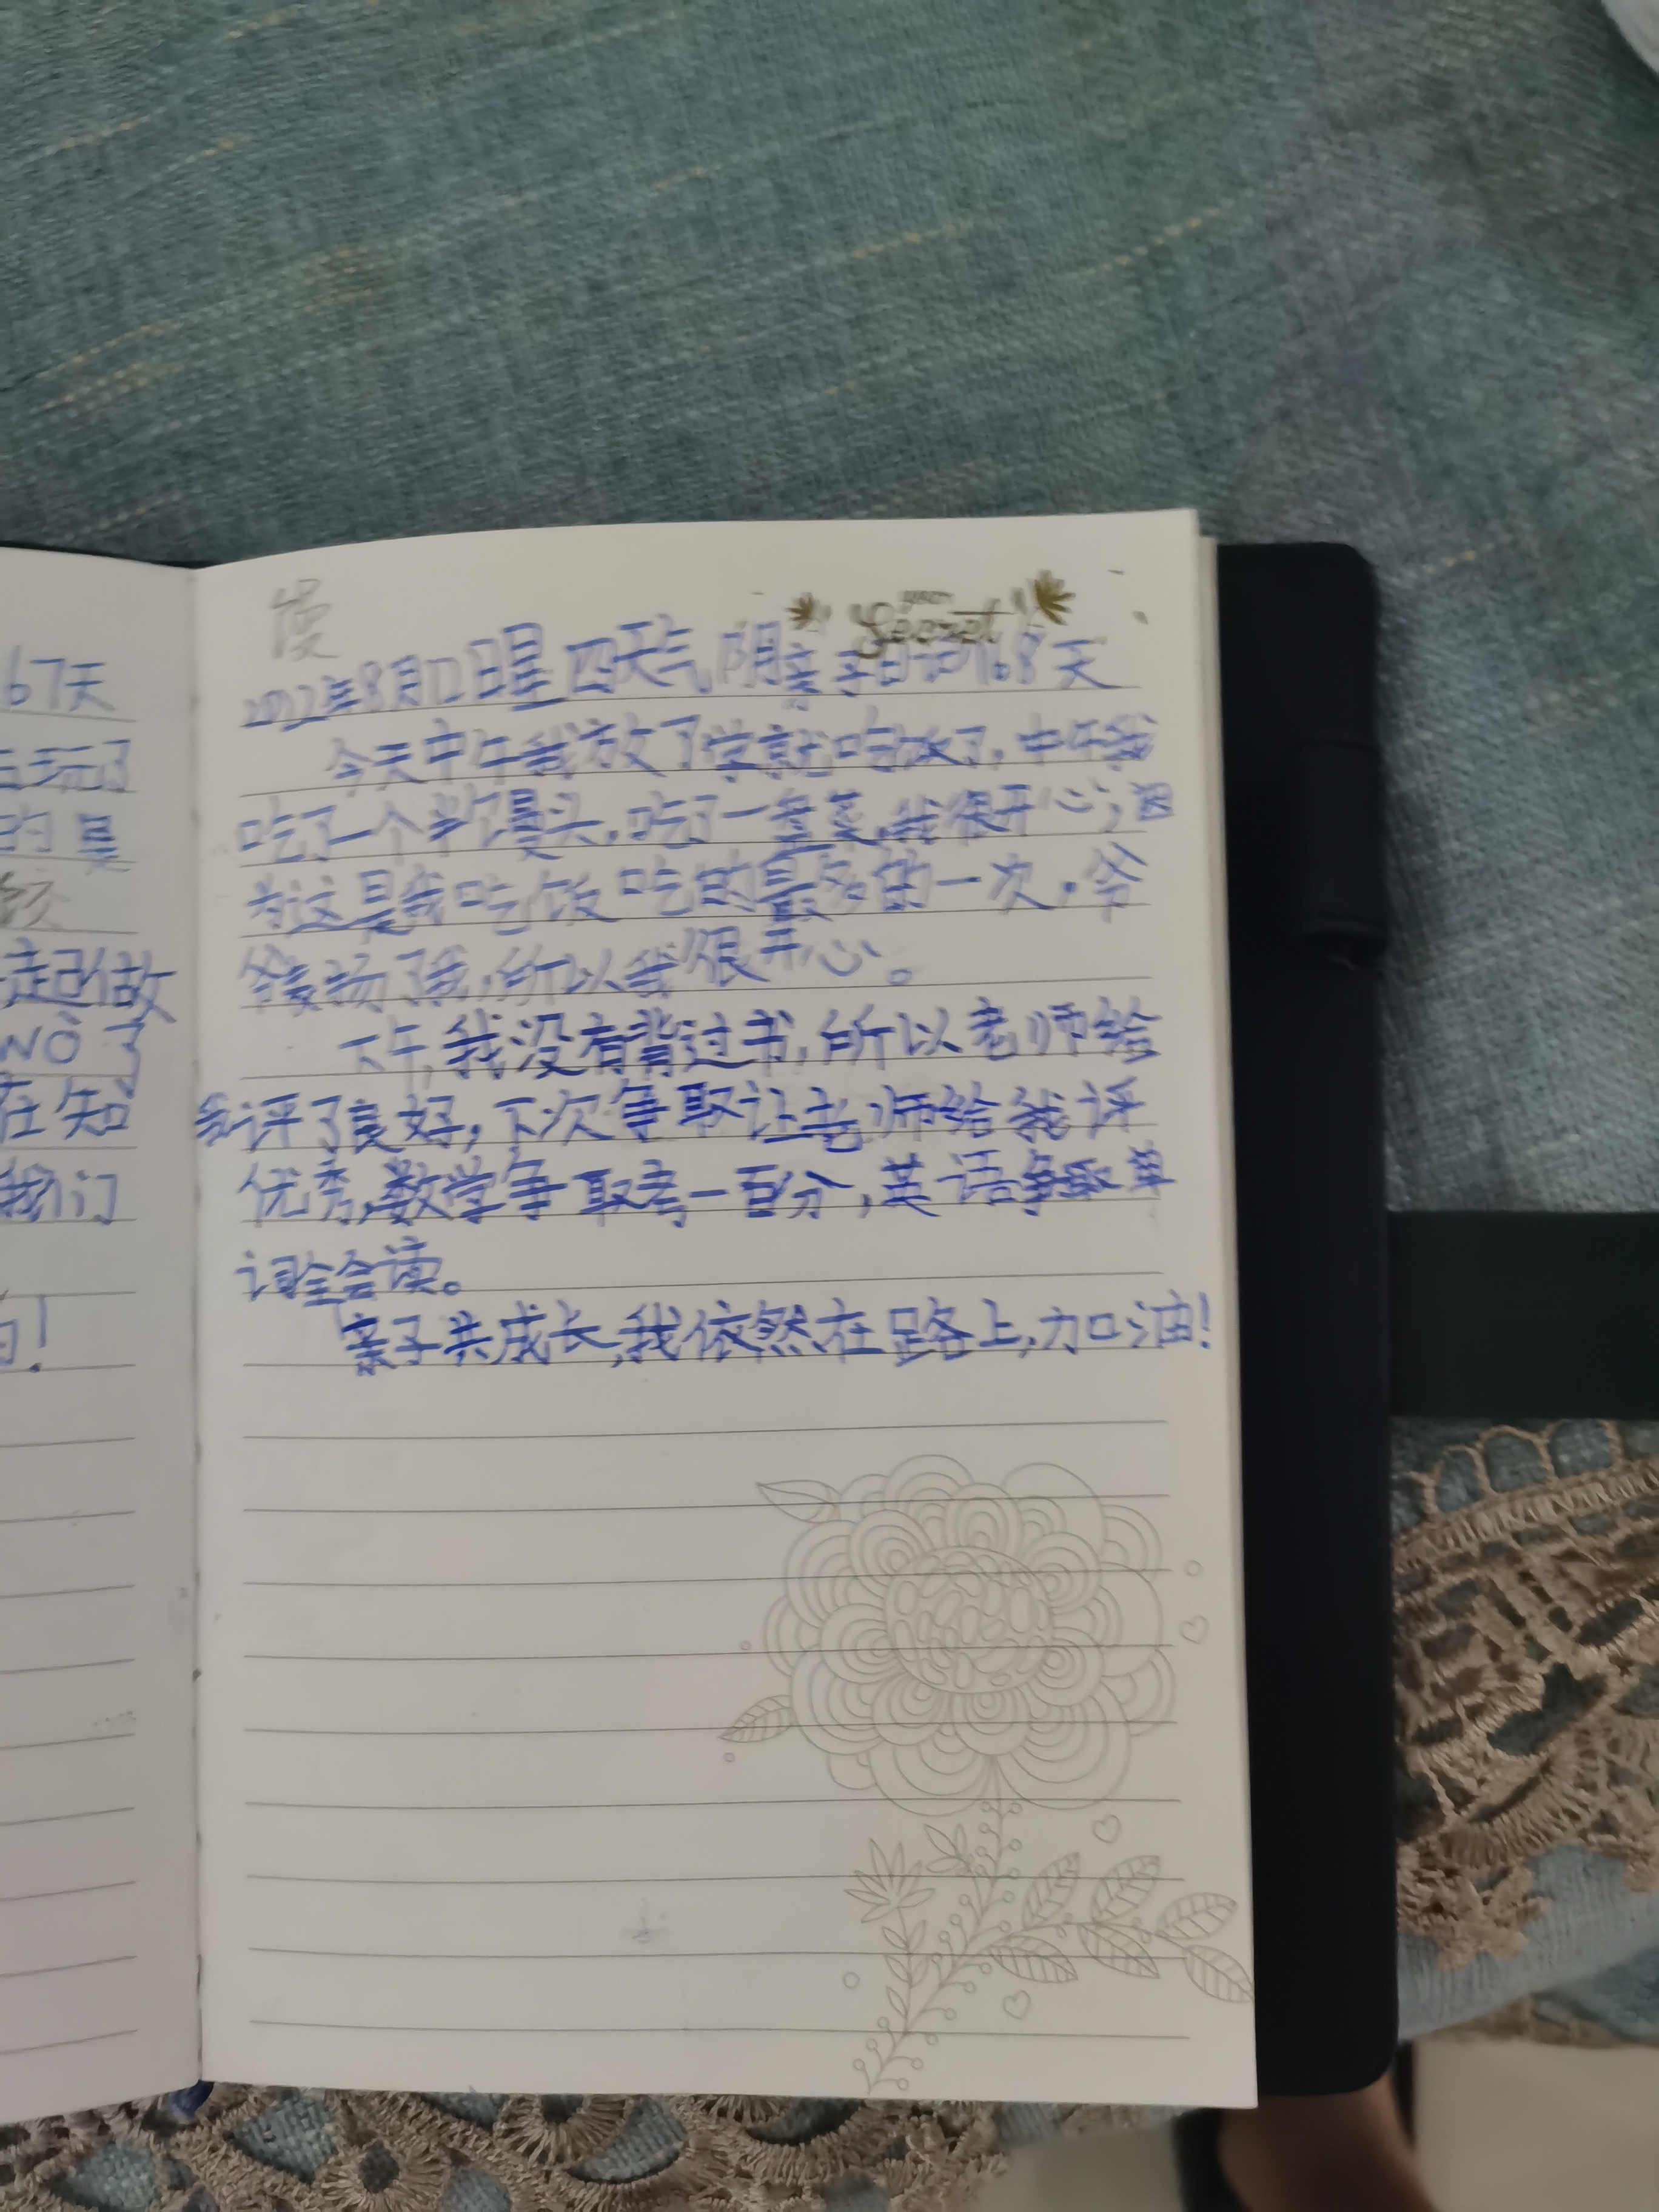 67天
玩了
的
起做
wǒ了
在知
我们
!
慢
your Secret
2022年8月 日星四天气阴亲子日记168天
今天中午我放了学就吃饭了,中午我
吃了一个半馒头,吃了一盘菜,我很开心,因
为这是我吃饭吃的最多的一次,爷
爷表扬了我,所以我很开心。
下午,我没有背过书,所以老师给
我评了良好,下次争取让老师给我评
优秀,数学争取考一百分,英语争取单
词全会读。
亲子共成长,我依然在路上,加油!